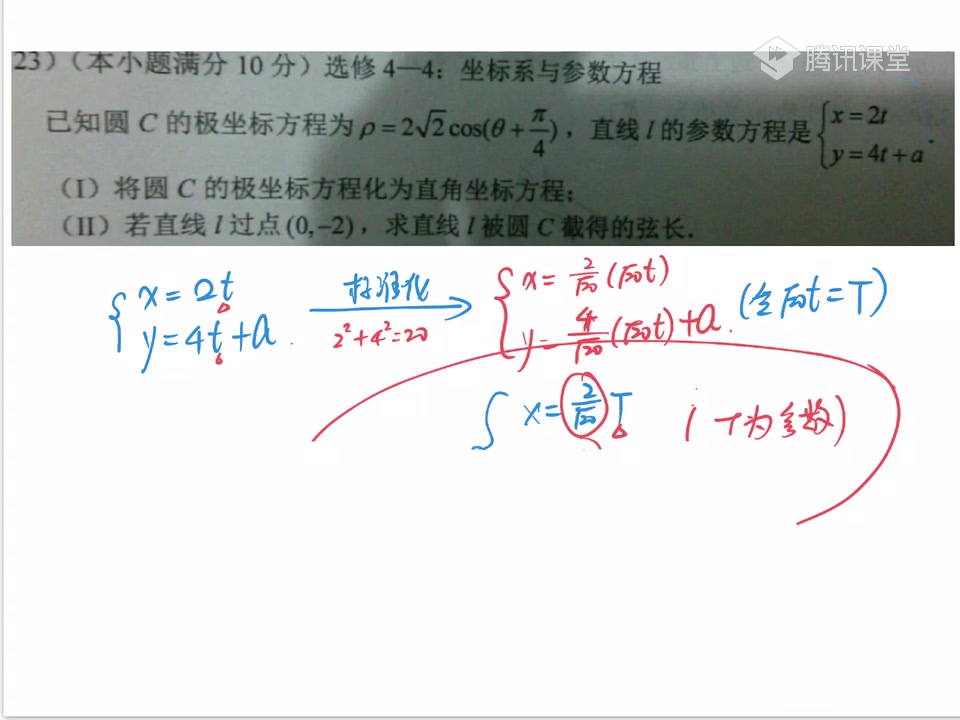 腾讯课堂
23)(本小题满分 10 分)选修 4—4:坐标系与参数方程
已知圆 C 的极坐标方程为 ρ=2√2cos(θ+π/4),直线 l 的参数方程是 {x=2t y=4t+a.
(I)将圆 C 的极坐标方程化为直角坐标方程;
(II)若直线 l 过点(0,−2),求直线 l 被圆 C 截得的弦长.
{x=2t
y=4t+a.
标准化
2²+4²=20
{x=2/√20(√20t)
y=4/√20(√20t)+a.
(令√20t=T)
{x=2/√20T
(T为参数)